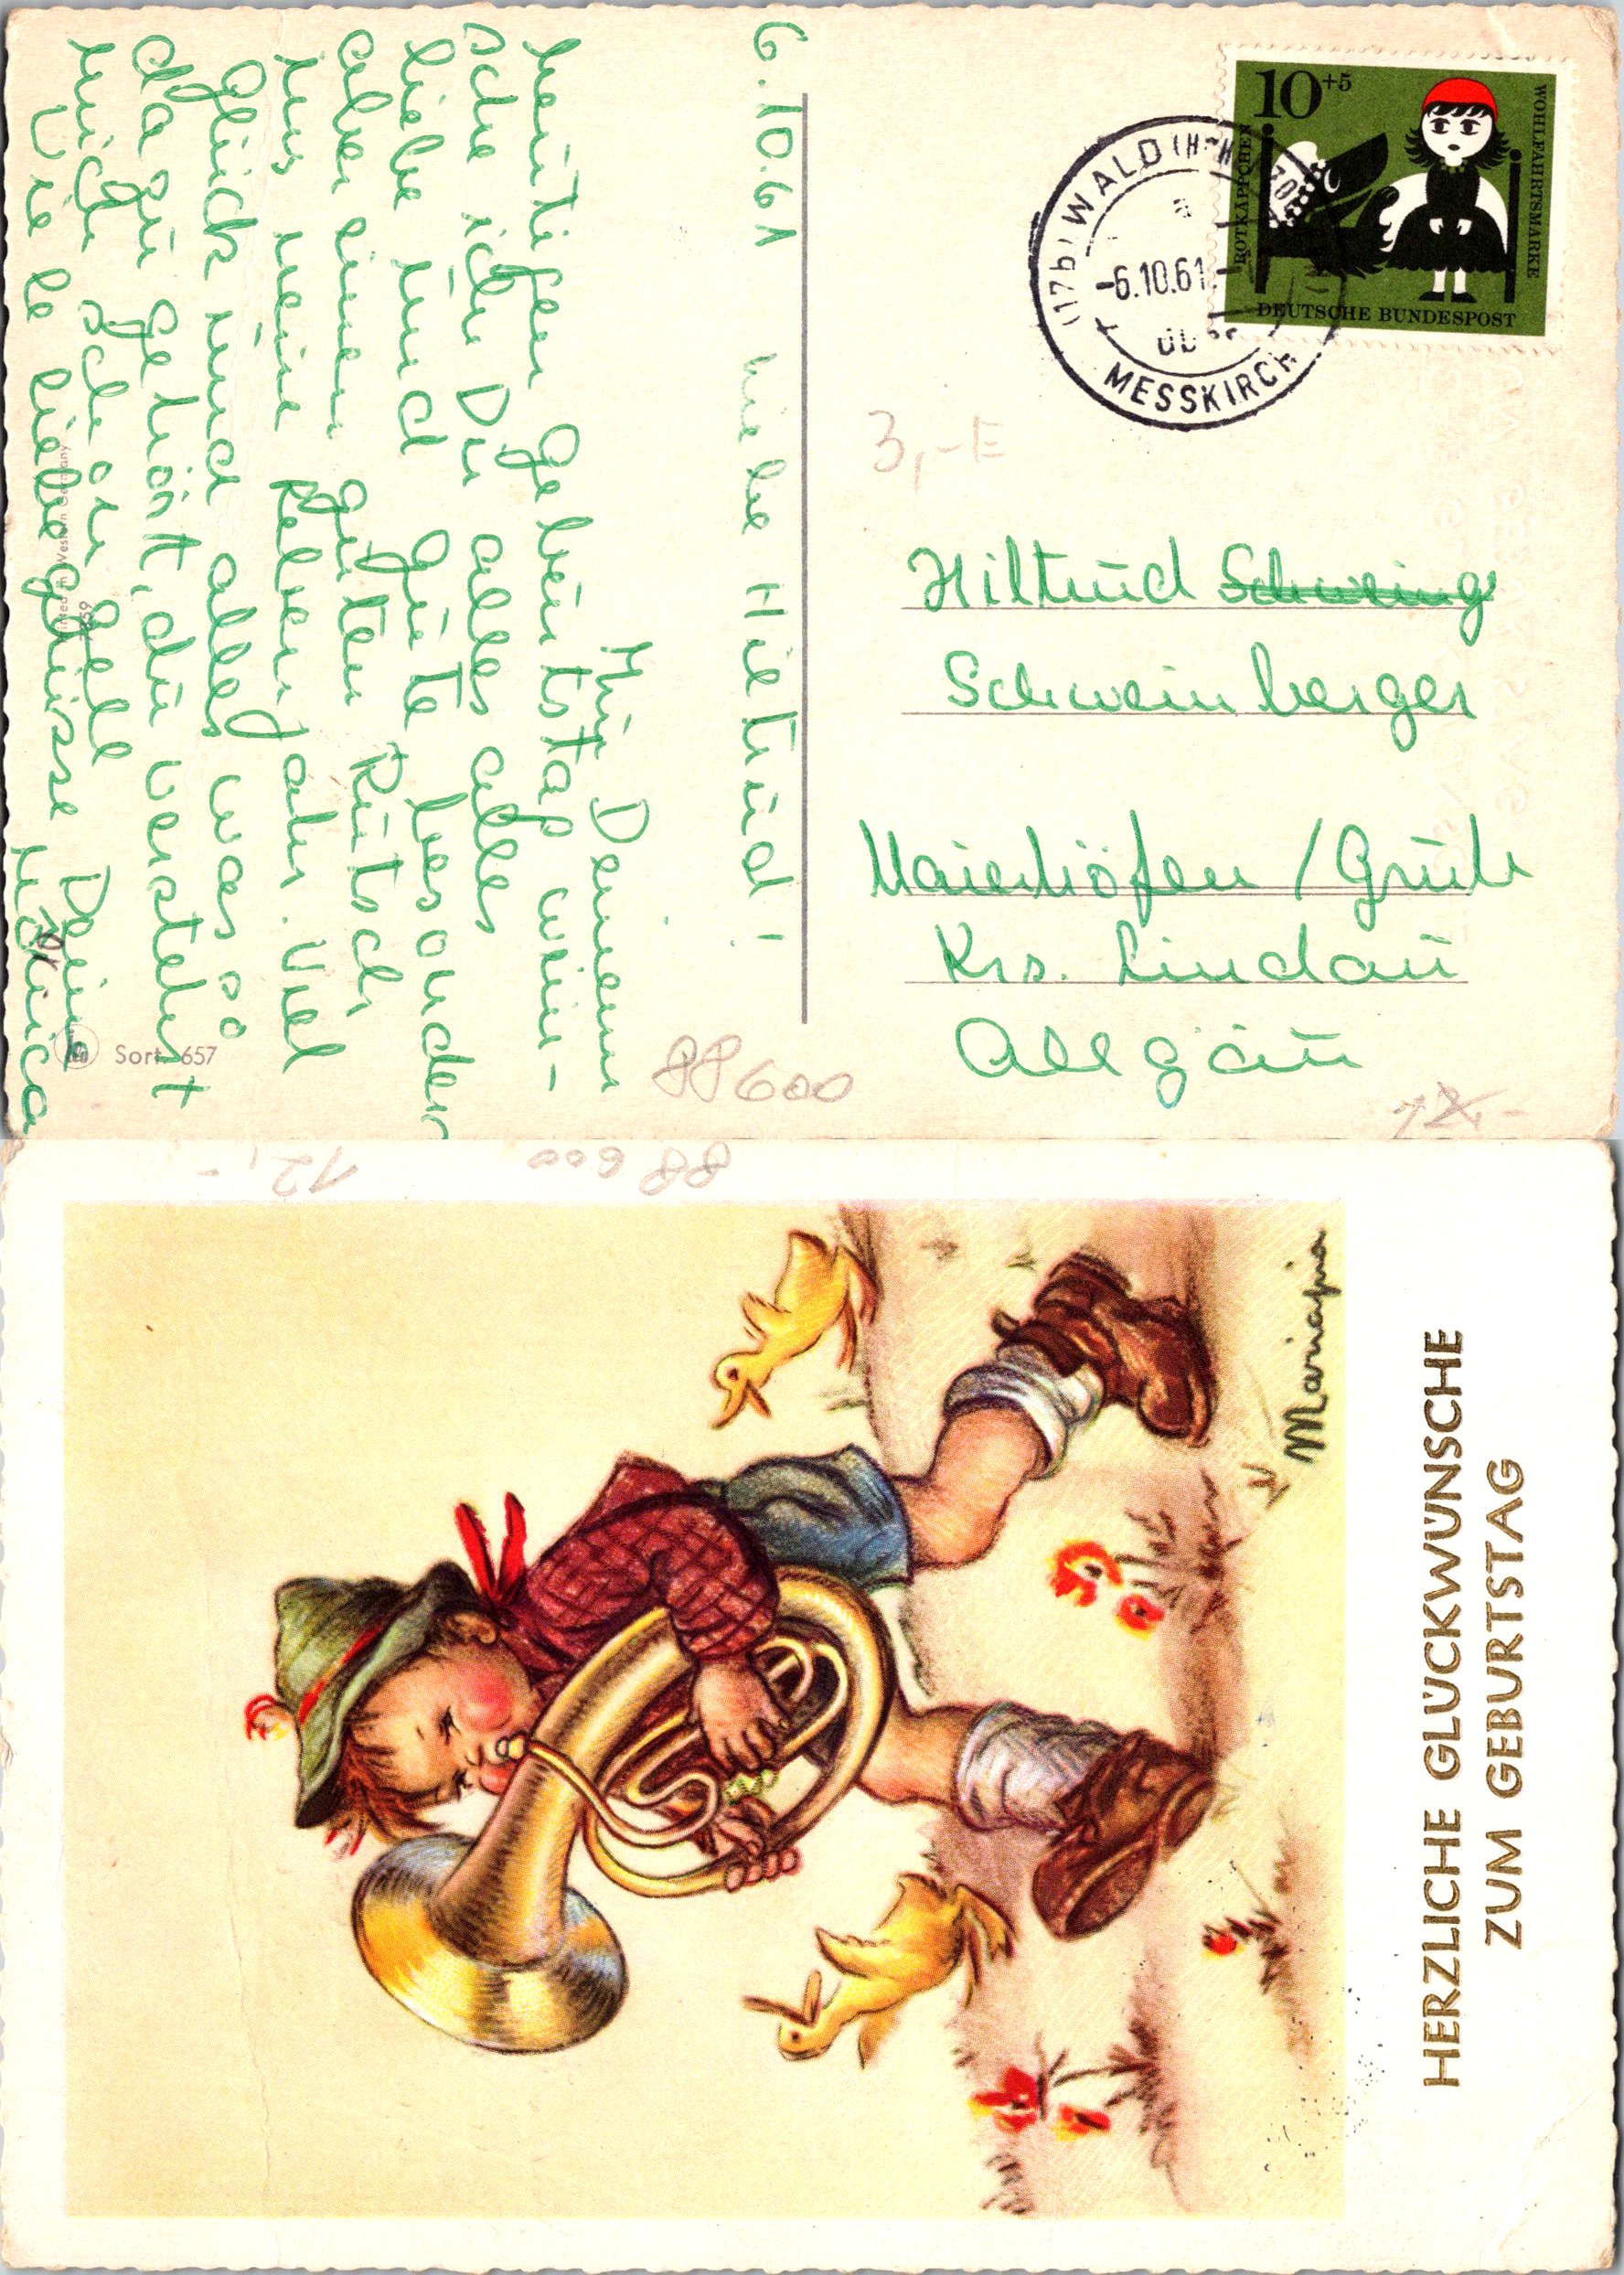 6.10.61
Liebe Hiltrud!
Zu Deinem
heutigen Geburtstag wün-
sche ich Dir alles alles
liebe und Gute besonders
aber einen guten Rutsch
ins neue Lebensjahr. Viel
Glück und alles was so
dazu gehört, du verstehst
mich schon gell
Viele liebe grüsse Deine
Monica
Sort. 657
Printed in Western Germany
659
10+5
WOHLFAHRTSMARKE
ROTKÄPPCHEN
DEUTSCHE BUNDESPOST
(17b) WALD (HOHENZOLL)
a
-6.10.61.-
über
MESSKIRCH
3,-E
Hiltrud Schweing
Schweinberger
Maierhöfen / Grünb
Krs. Lindau
Allgäu
88600
12,-
88600
12,-
Mariapia
HERZLICHE GLÜCKWÜNSCHE
ZUM GEBURTSTAG